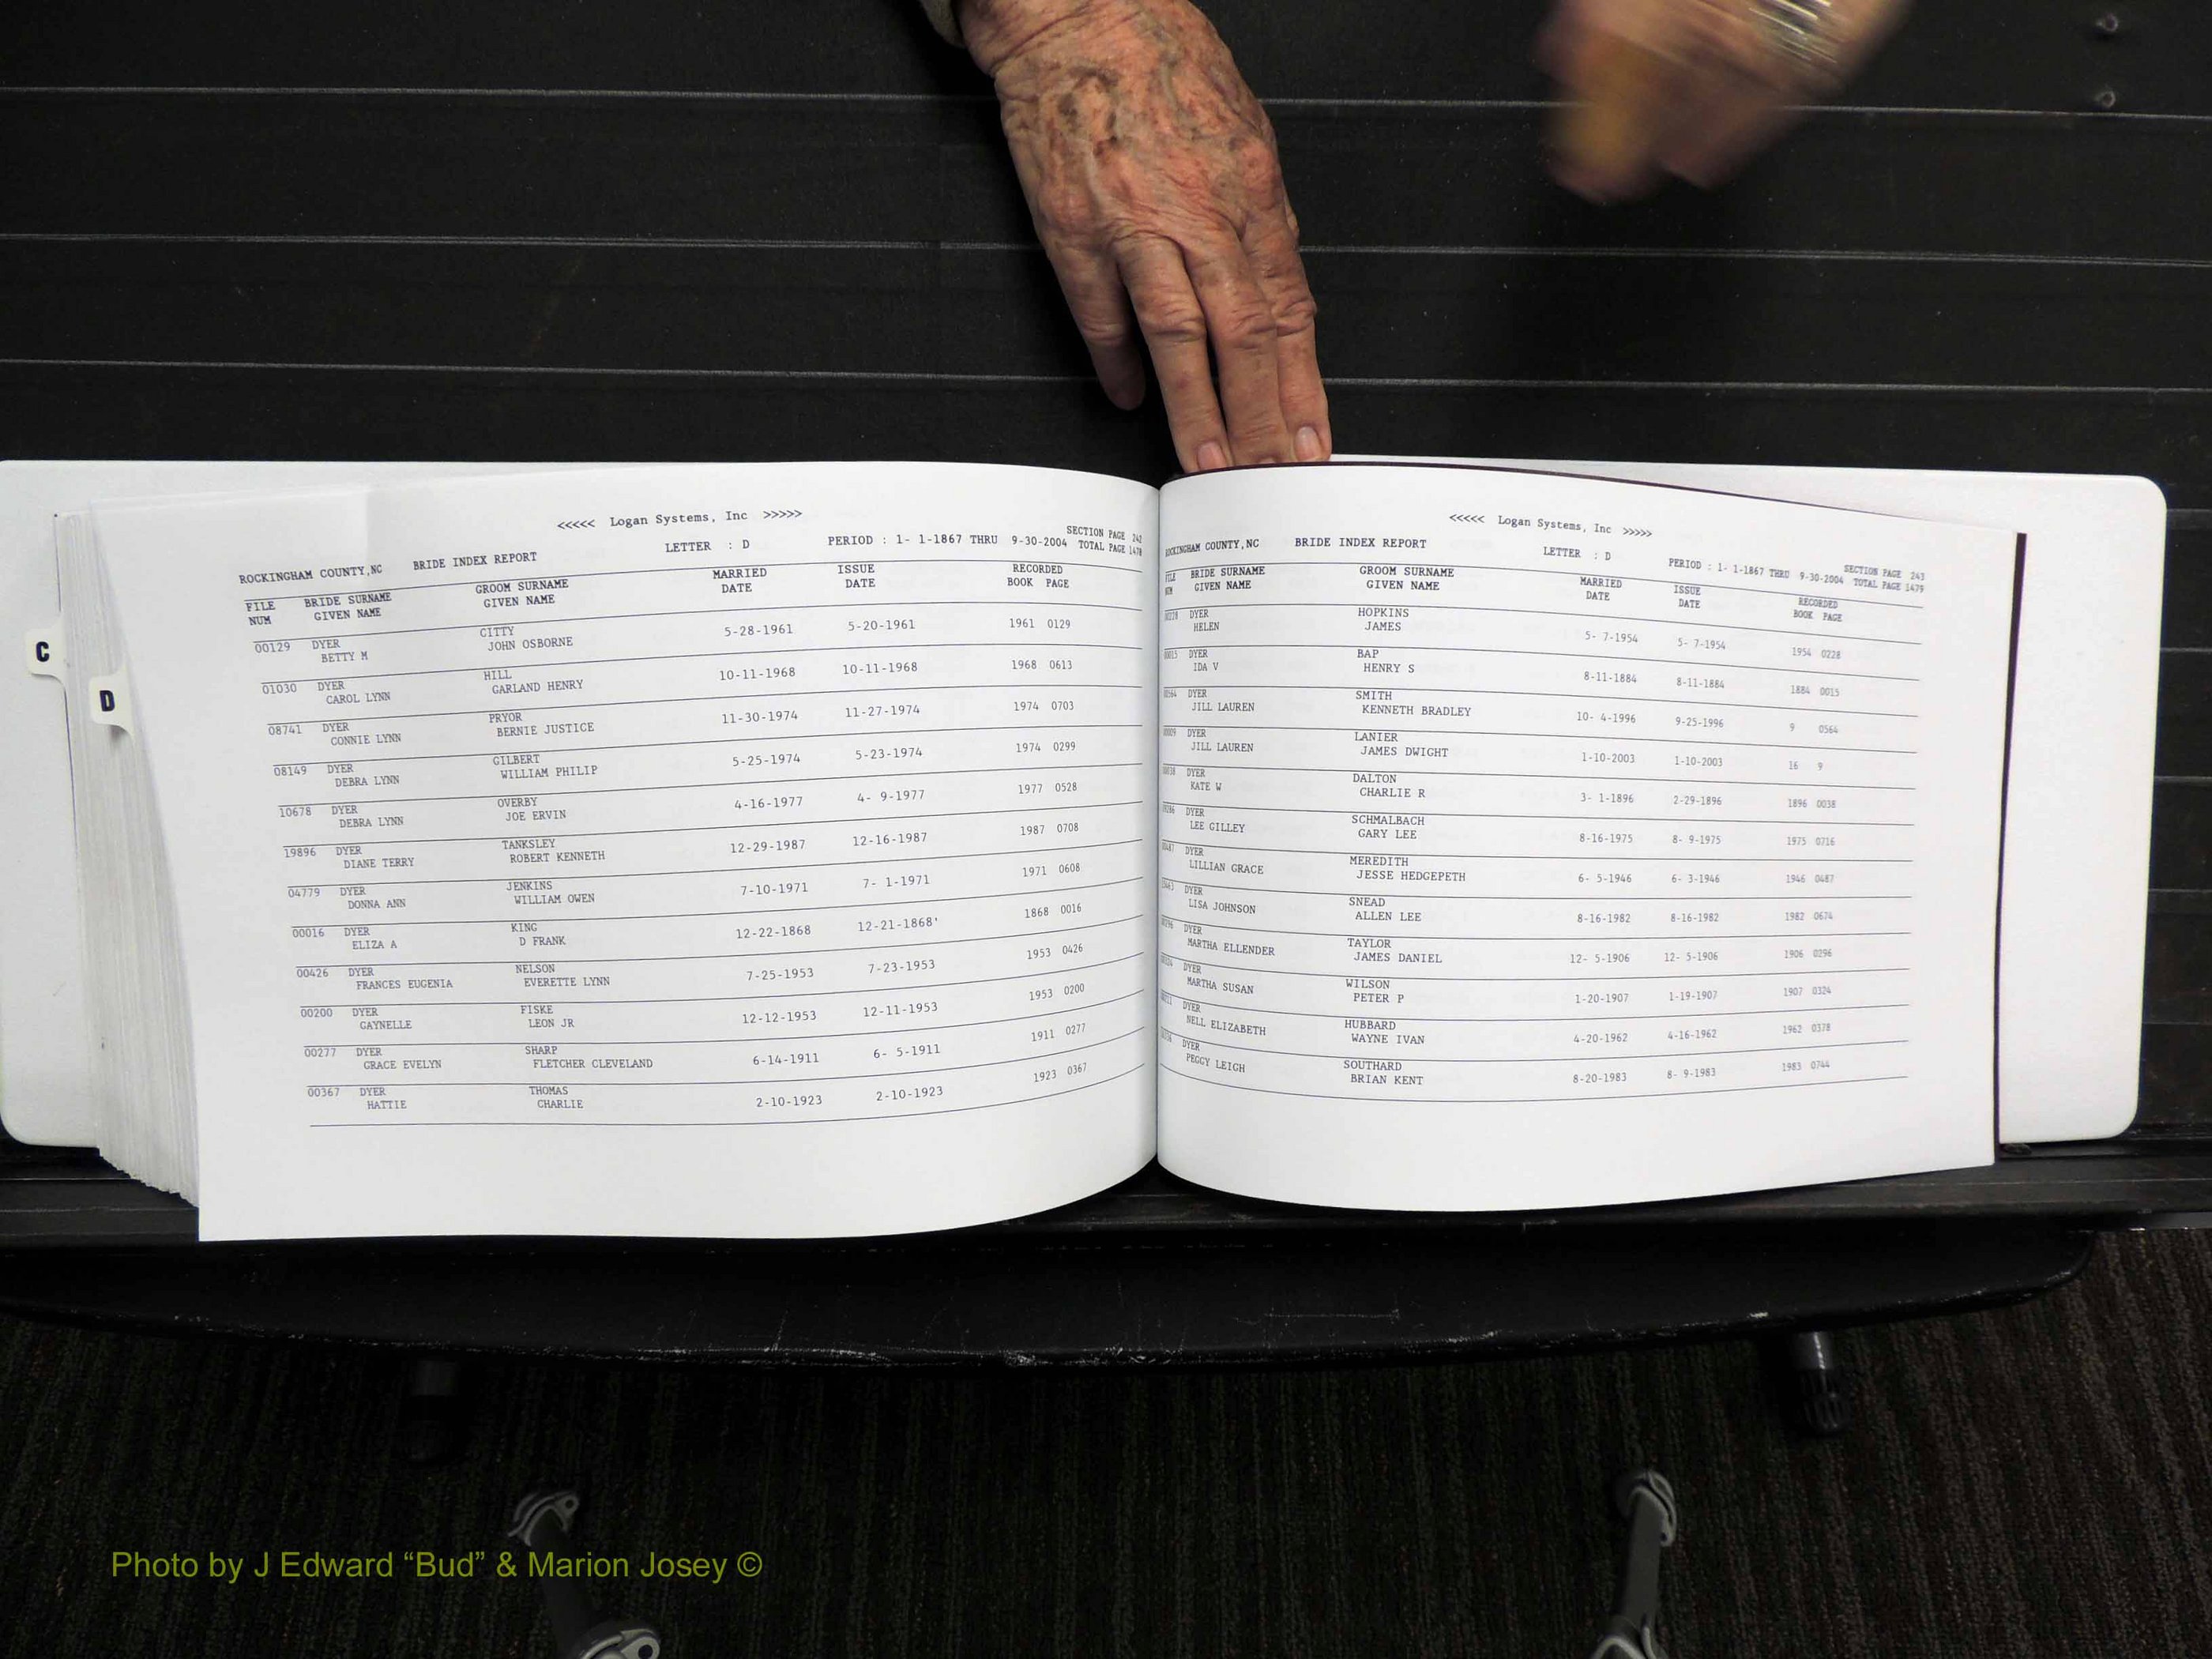 C
D
<<<<< Logan Systems, Inc >>>>>
ROCKINGHAM COUNTY,NC BRIDE INDEX REPORT LETTER : D PERIOD : 1- 1-1867 THRU 9-30-2004 SECTION PAGE 242
TOTAL PAGE 1478
FILE BRIDE SURNAME GROOM SURNAME MARRIED ISSUE RECORDED
NUM GIVEN NAME GIVEN NAME DATE DATE BOOK PAGE
00129 DYER CITTY 5-28-1961 5-20-1961 1961 0129
BETTY M JOHN OSBORNE
01030 DYER HILL 10-11-1968 10-11-1968 1968 0613
CAROL LYNN GARLAND HENRY
08741 DYER PRYOR 11-30-1974 11-27-1974 1974 0703
CONNIE LYNN BERNIE JUSTICE
08149 DYER GILBERT 5-25-1974 5-23-1974 1974 0299
DEBRA LYNN WILLIAM PHILIP
10678 DYER OVERBY 4-16-1977 4- 9-1977 1977 0528
DEBRA LYNN JOE ERVIN
19896 DYER TANKSLEY 12-29-1987 12-16-1987 1987 0708
DIANE TERRY ROBERT KENNETH
04779 DYER JENKINS 7-10-1971 7- 1-1971 1971 0608
DONNA ANN WILLIAM OWEN
00016 DYER KING 12-22-1868 12-21-1868' 1868 0016
ELIZA A D FRANK
00426 DYER NELSON 7-25-1953 7-23-1953 1953 0426
FRANCES EUGENIA EVERETTE LYNN
00200 DYER FISKE 12-12-1953 12-11-1953 1953 0200
GAYNELLE LEON JR
00277 DYER SHARP 6-14-1911 6- 5-1911 1911 0277
GRACE EVELYN FLETCHER CLEVELAND
00367 DYER THOMAS 2-10-1923 2-10-1923 1923 0367
HATTIE CHARLIE
<<<<< Logan Systems, Inc >>>>>
ROCKINGHAM COUNTY,NC BRIDE INDEX REPORT LETTER : D PERIOD : 1- 1-1867 THRU 9-30-2004 SECTION PAGE 243
TOTAL PAGE 1479
FILE BRIDE SURNAME GROOM SURNAME MARRIED ISSUE RECORDED
NUM GIVEN NAME GIVEN NAME DATE DATE BOOK PAGE
DYER HOPKINS 5- 7-1954 5- 7-1954 1954 0228
HELEN JAMES
DYER BAP 8-11-1884 8-11-1884 1884 0015
IDA V HENRY S
DYER SMITH 10- 4-1996 9-25-1996 9 0564
JILL LAUREN KENNETH BRADLEY
DYER LANIER 1-10-2003 1-10-2003 16 9
JILL LAUREN JAMES DWIGHT
DYER DALTON 3- 1-1896 2-29-1896 1896 0038
KATE W CHARLIE R
DYER SCHMALBACH 8-16-1975 8- 9-1975 1975 0716
LEE GILLEY GARY LEE
DYER MEREDITH 6- 5-1946 6- 3-1946 1946 0487
LILLIAN GRACE JESSE HEDGEPETH
DYER SNEAD 8-16-1982 8-16-1982 1982 0674
LISA JOHNSON ALLEN LEE
DYER TAYLOR 12- 5-1906 12- 5-1906 1906 0296
MARTHA ELLENDER JAMES DANIEL
DYER WILSON 1-20-1907 1-19-1907 1907 0324
MARTHA SUSAN PETER P
DYER HUBBARD 4-20-1962 4-16-1962 1962 0378
NELL ELIZABETH WAYNE IVAN
DYER SOUTHARD 8-20-1983 8- 9-1983 1983 0744
PEGGY LEIGH BRIAN KENT
Photo by J Edward “Bud” & Marion Josey ©